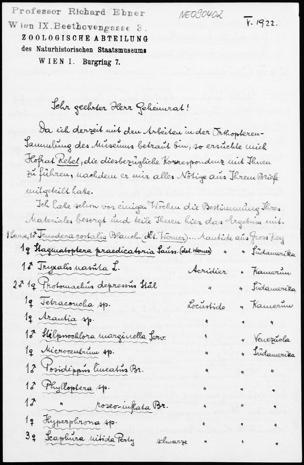 Professor Richard Ebner
Wien IX. Beethovengasse 3.
NEO90402
V. 1922.
ZOOLOGISCHE ABTEILUNG
des Naturhistorischen Staatsmuseums
WIEN I. Burgring 7.
Sehr geehrter Herr Geheimrat!
Da ich derzeit mit den Arbeiten in der Orthopteren-
Sammlung des Museums betraut bin, so ersuchte mich
Hofrat Rebel, die diesbezügliche Korrespondenz mit Ihnen
zu führen, nachdem er mir alles Nötige aus Ihrem Briefe
mitgeteilt habe.
Ich habe schon vor einigen Wochen die Bestimmung Ihres
Materiales besorgt und teile Ihnen hier das Ergebnis mit.
1♂ Tenodera costalis Blanch. (det. Werner) Mantide aus
1♀ Stagmatoptera praedicatoria Sauss. (det. Werner) " " Südamerika
1♂ Tryxalis nasuta L. Acridier " Kamerun
2♂ 1♀ Prot depressus Stål " " Südamerika
1♀ Tetraconcha sp. Locustide " Kamerun
1♀ Arantia sp. " " "
1♂ Stilpnochlora marginella Serv. " " Venezuela
1♀ Microcentrum sp. " " Südamerika
1♂ Posidippus lineatus Br. " " "
1♂ Phylloptera sp. " " "
1♂ " roseo-inflata Br. " " "
1♀ Hyperphrona sp. " " "
3♀ Scaphura nitida Perty schwarze " " "